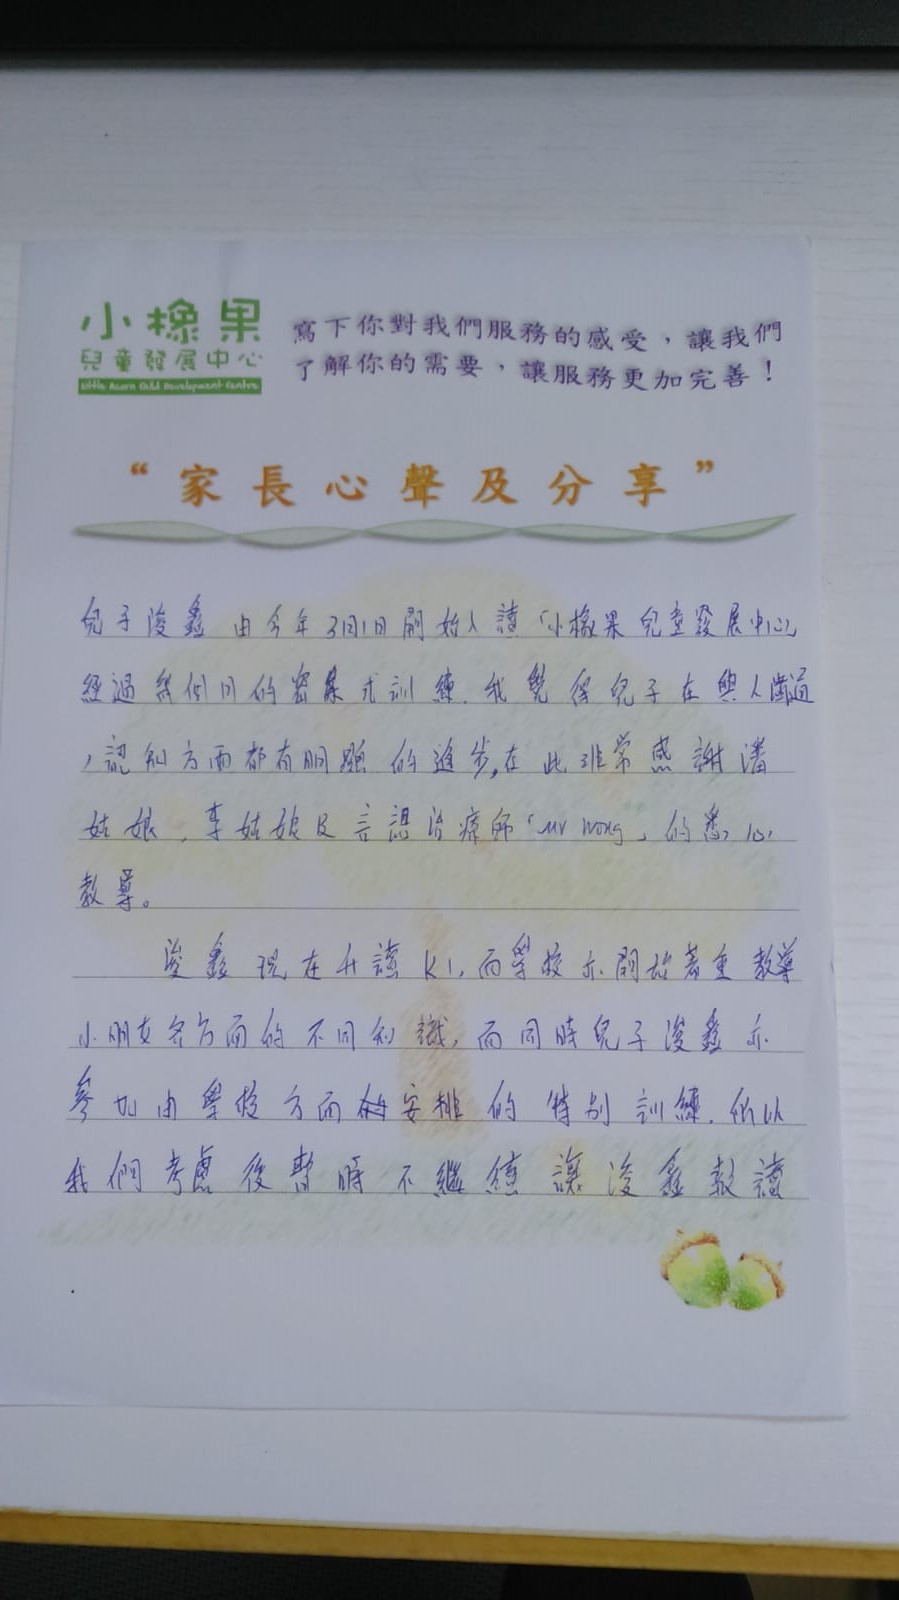 小橡果
兒童發展中心
Little Acorn Child Development Centre
寫下你對我們服務的感受，讓我們
了解你的需要，讓服務更加完善！
“家長心聲及分享”
兒子浚鑫由今年3月1日開始入讀「小橡果兒童發展中心」
經過幾個月的密集式訓練．我覺得兒子在與人溝通
，認知方面都有明顯的進步,在此非常感謝潘
姑娘．李姑娘及言語治療師「Mr Wong」的悉心
教導。
浚鑫現在升讀K1,而學校亦開始著重教導
小朋友各方面的不同知識,而同時兒子浚鑫亦
參加由學校方面安排的特別訓練．所以
我們考慮後暫時不繼續讓浚鑫報讀